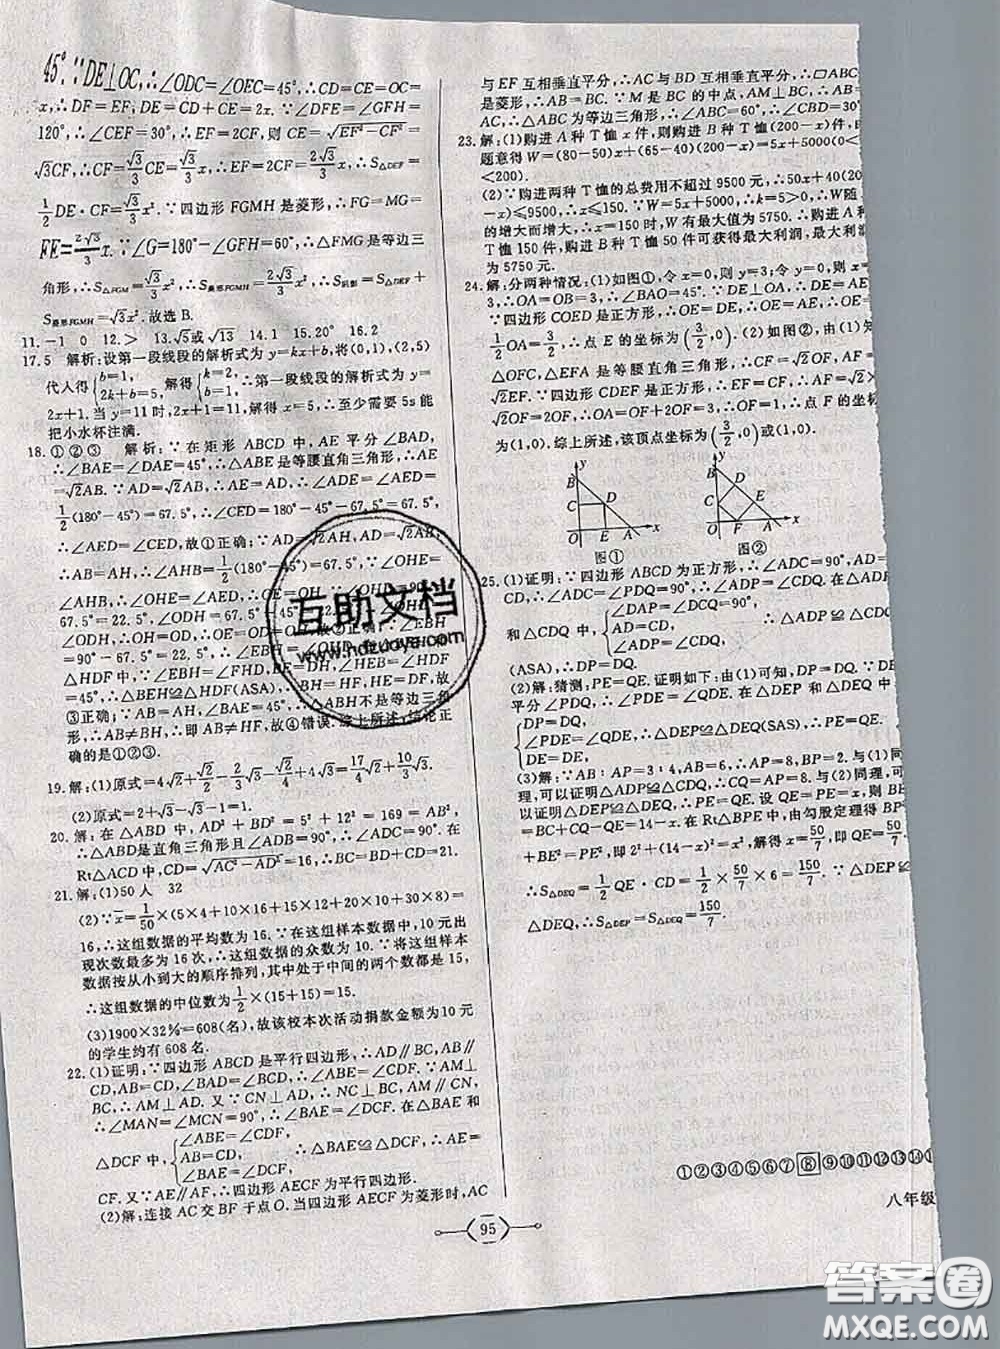 45°.∵DE⊥OC,∴∠ODC=∠OEC=45°,∴CD=CE=OC=
x,∴DF=EF,DE=CD+CE=2x.∵∠DFE=∠GFH=
120°,∴∠CEF=30°,∴EF=2CF,则 CE=√(EF²-CF²)=
√3CF,∴CF=√3/3 CE=√3/3 x,∴EF=2CF=2√3/3 x,∴S△DEF=
1/2 DE·CF=√3/3 x².∵四边形 FGMH 是菱形,∴FG=MG=
FE=2√3/3 x.∵∠G=180°-∠GFH=60°,∴△FMG 是等边三
角形,∴S△FGM=√3/3 x²,∴S菱形FGMH=2√3/3 x²,∴S阴影=S△DEF+
S菱形FGMH=√3x².故选 B.
11.-1 0 12.> 13.√5或√13 14.1 15.20° 16.2
17.5 解析:设第一段线段的解析式为 y=kx+b,将(0,1),(2,5)
代人得{b=1, 2k+b=5, 解得{k=2, b=1, ∴第一段线段的解析式为 y=
2x+1.当 y=11时,2x+1=11,解得 x=5,∴至少需要 5s 能
把小水杯注满.
18.①②③ 解析:∵在矩形 ABCD 中,AE 平分∠BAD,
∴∠BAE=∠DAE=45°,∴△ABE是等腰直角三角形,∴
AE=√2AB.∵AD=√2AB,∴AE=AD,∴∠ADE=∠AED=
1/2(180°-45°)=67.5°,∴∠CED=180°-45°-67.5°=67.5°,
∴∠AED=∠CED,故①正确;∵AD=√2AH,AD=√2AB,∴
AB=AH,∴∠AHB=1/2(180°-45°)=67.5°,∵∠OHE=
∠AHB,∴∠OHE=∠AED,∴OE=OH.∵∠OHD=90°-
67.5°=22.5°,∠ODH=67.5°-45°=22.5°,∴∠OHD=
∠ODH,∴OH=OD,∴OE=OD=OH,故②正确;∵∠EBH
=22.5°,∴∠EBH=∠OHD.在△BEH和
△HDF中,∵∠EBH=∠FHD,BE=DH,∠HEB=∠HDF
=45°,∴△BEH≌△HDF(ASA),∴EBH=HF,HE=DF,故
③正确;∵AB=AH,∠BAE=45°,∴△ABH不是等边三角
形,∴AB≠BH,∴即 AB≠HF,故④错误.综上所述,结论正
确的是①②③.
19.解:(1)原式=4√2+√2/2-2/3√3-√3+4√3=17/4√2+10/3√3.
(2)原式=2+√3-√3-1=1.
20.解:在△ABD 中,AD²+BD²=5²+12²=169=AB²,
∴△ABD是直角三角形且∠ADB=90°,∴∠ADC=90°.在
Rt△ACD 中,CD=√(AC²-AD²)=16,∴BC=BD+CD=21.
21.解:(1)50人 32
(2)∵x̄=1/50×(5×4+10×16+15×12+20×10+30×8)=
16,∴这组数据的平均数为 16.∵在这组样本数据中,10 元出
现次数最多为 16 次,∴这组数据的众数为 10.∵将这组样本
数据按从小到大的顺序排列,其中处于中间的两个数都是 15,
∴这组数据的中位数为1/2×(15+15)=15.
(3)1900×32%=608(名),故该校本次活动捐款金额为 10 元
的学生约有 608 名.
22.(1)证明:∵四边形 ABCD 是平行四边形,∴AD∥BC,AB∥
CD,AB=CD,∠BAD=∠BCD,∴∠ABE=∠CDF.∵AM⊥
BC,∴AM⊥AD.又∵CN⊥AD,∴NC⊥BC,∴AM∥CN,
∴∠MAN=∠MCN=90°,∴∠BAE=∠DCF.在△BAE 和
△DCF 中,{∠ABE=∠CDF, AB=CD, ∠BAE=∠DCF, ∴△BAE≌△DCF,∴AE=
CF.又∵AE∥AF,∴四边形 AECF 为平行四边形.
(2)解:连接 AC 交 BF 于点 O.当四边形 AECF 为菱形时,AC
与 EF 互相垂直平分,∴AC 与 BD 互相垂直平分,∴□ABC
是菱形,∴AB=BC.∵M 是 BC 的中点,AM⊥BC,∴AB
AC,∴△ABC为等边三角形,∴∠ABC=60°,∴∠CBD=30°
23.解:(1)购进 A 种 T 恤 x 件,则购进 B 种 T 恤(200-x)件,由
题意得 W=(80-50)x+(65-40)(200-x)=5x+5000(0<
<200).
(2)∵购进两种 T 恤的总费用不超过 9500 元,∴50x+40(20
x)≤9500,∴x≤150.∵W=5x+5000,∴k=5>0,∴W随
的增大而增大,∴x=150时,W 有最大值为 5750.∴购进 A 种
T恤 150 件,购进 B 种 T 恤 50 件可获得最大利润,最大利润
为 5750 元.
24.解:分两种情况:(1)如图①,令 x=0,则 y=3;令 y=0,则 x=
3,∴OA=OB=3,∴∠BAO=45°.∵DE⊥OA,∴DE=
∵四边形 COED 是正方形,∴OE=DE,∴OE=AE,∴O
1/2 OA=3/2,∴点 E 的坐标为(3/2,0).(2)如图②,由(1)知
△OFC,△EFA 是等腰直角三角形,∴CF=√2OF,AF=
√2EF.∵四边形 CDEF 是正方形,∴EF=CF,∴AF=√2×
√2OF=2OF,∴OA=OF+2OF=3,∴OF=1,∴点 F 的坐
为(1,0).综上所述,该顶点坐标为(3/2,0)或(1,0).
y
B
C
D
O
E
A
x
图①
y
B
D
C
E
O
F
A
x
图②
25.(1)证明:∵四边形 ABCD 为正方形,∴∠ADC=90°,AD=
CD,∴∠ADC=90°,∠ADP=∠CDQ.在△ADP
和△CDQ 中,{∠DAP=∠DCQ=90°, AD=CD, ∠ADP=∠CDQ,
(ASA),∴DP=DQ.
(2)解:猜测:PE=QE.证明如下:由(1)可知,DP=DQ.∵DE
平分∠PDQ,∴∠PDE=∠QDE.在△DEP 与△DEQ 中,
{DP=DQ, ∠PDE=∠QDE, DE=DE, ∴△DEP≌△DEQ(SAS),∴PE=QE.
(3)解:∵AB∶AP=3∶4,AB=6,∴AP=8,BP=2.与(1)同理,可
可以证明△ADP≌△CDQ,∴CQ=AP=8.与(2)同理,可
以证明△DEP≌△DEQ,∴PE=QE.设 QE=PE=x,则 BE
=BC+CQ-QE=14-x.在 Rt△BPE 中,由勾股定理得 BP²
+BE²=PE²,即 2²+(14-x)²=x²,解得 x=50/7,即 QE=50/7.
∴S△DEQ=1/2 QE·CD=1/2×50/7×6=150/7.∵△DEP≌
△DEQ,∴S△DEP=S△DEQ=150/7.
互助文档
www.hdzuoye.com
①②③④⑤⑥⑦⑧⑨⑩⑪⑫⑬⑭
八年级
95
答案圈
MXQE.COM